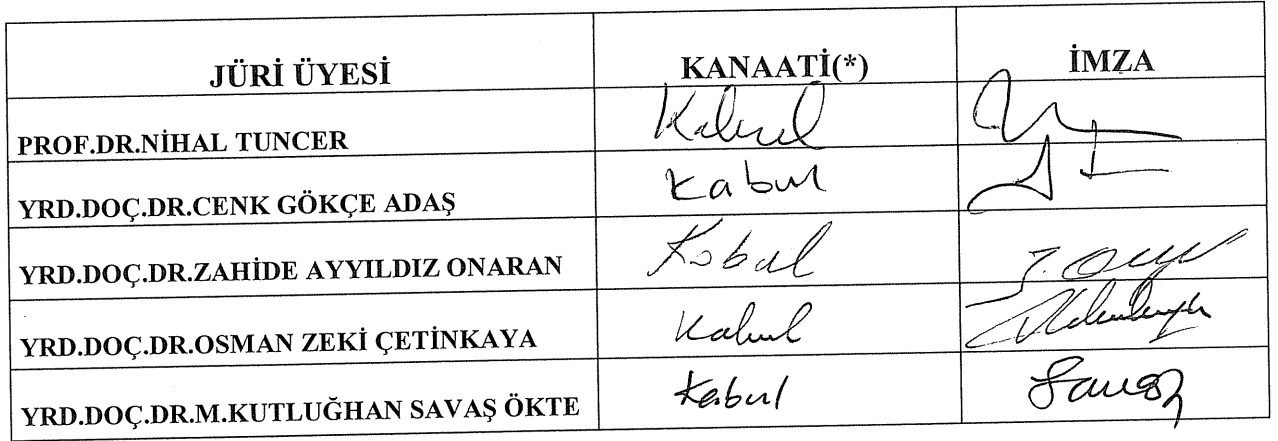 JÜRİ ÜYESİ KANAATİ(*) İMZA
PROF.DR.NİHAL TUNCER Kabul
YRD.DOÇ.DR.CENK GÖKÇE ADAŞ Kabul
YRD.DOÇ.DR.ZAHİDE AYYILDIZ ONARAN Kabul
YRD.DOÇ.DR.OSMAN ZEKİ ÇETİNKAYA Kabul
YRD.DOÇ.DR.M.KUTLUĞHAN SAVAŞ ÖKTE Kabul